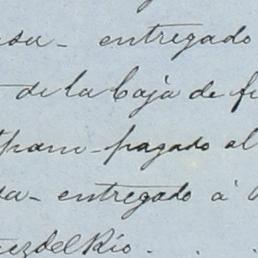 entregado
de la Caja de
pagado al
entregado á
del Rio.